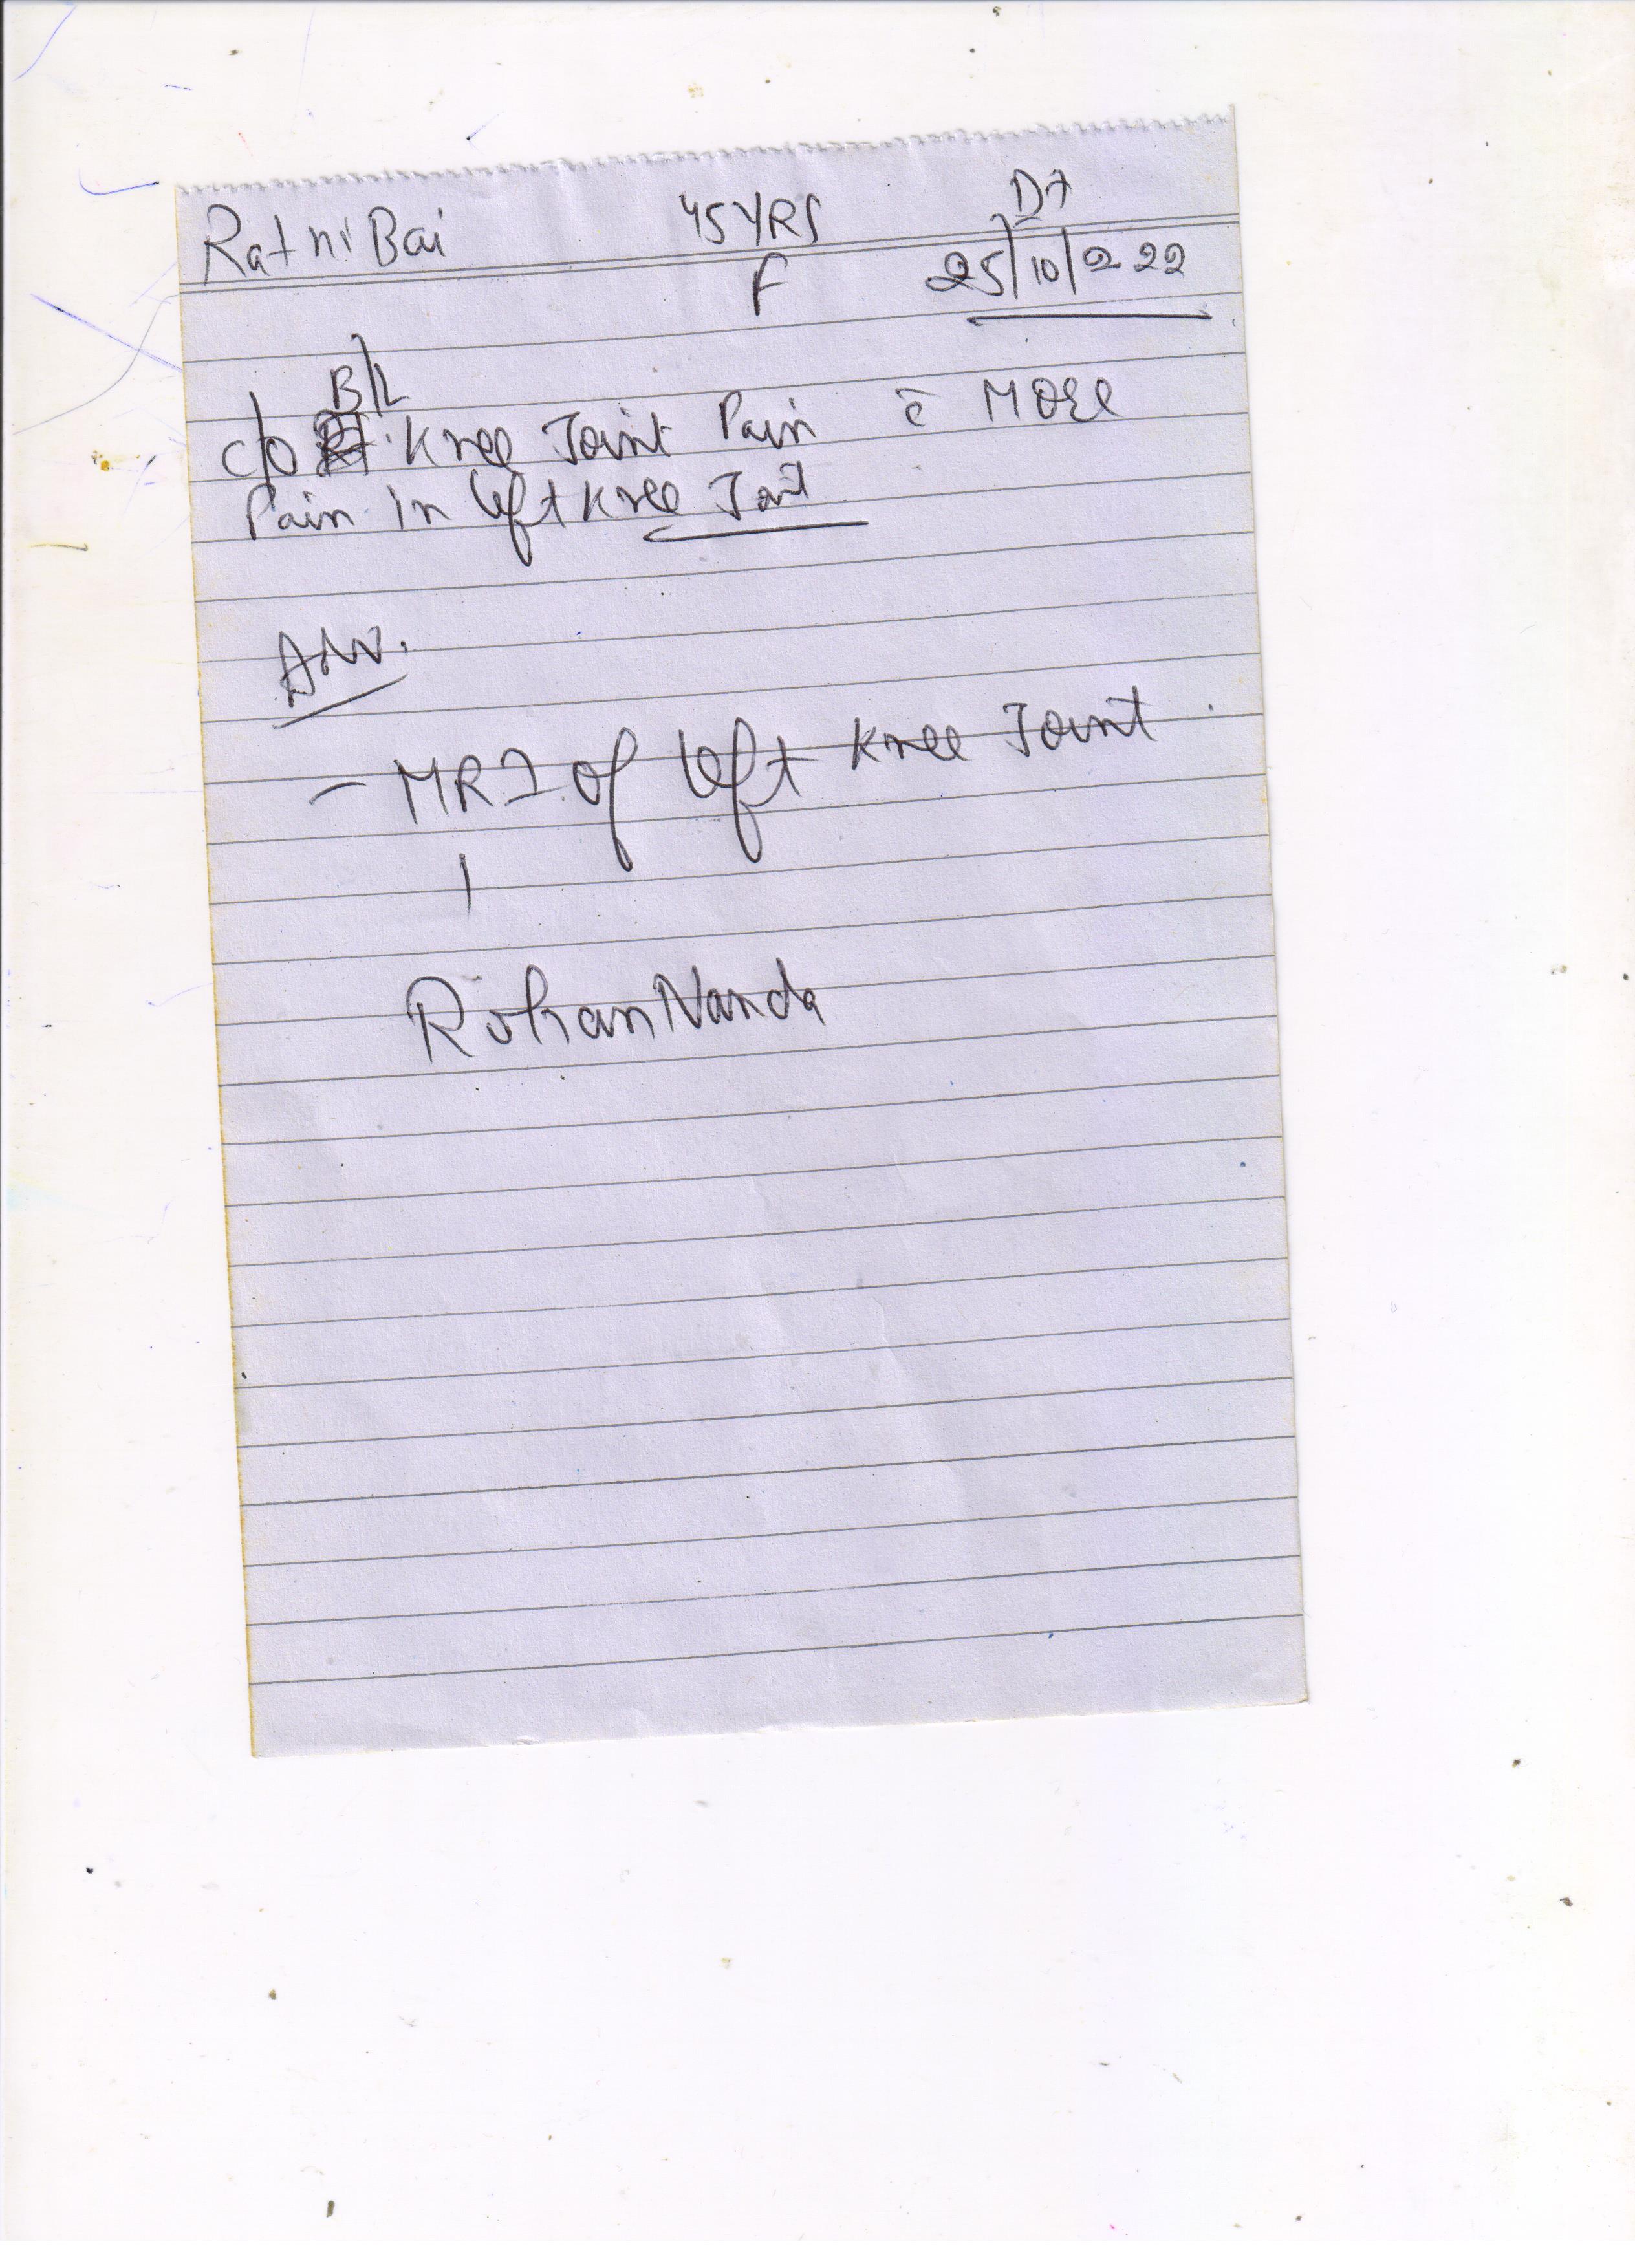 Ratni Bai 45 YRS Dt
F 25/10/2022
B/L
C/O Knee Joint Pain c̄ More
Pain in left Knee Joint
Adv.
- MRI of left Knee Joint
Rohan Nanda